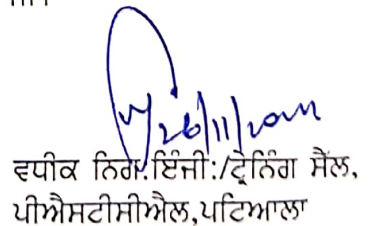 26/11/2024
ਵਧੀਕ ਨਿਗ.ਇੰਜੀ:/ਟ੍ਰੇਨਿੰਗ ਸੈੱਲ,
ਪੀਐਸਟੀਸੀਐਲ,ਪਟਿਆਲਾ